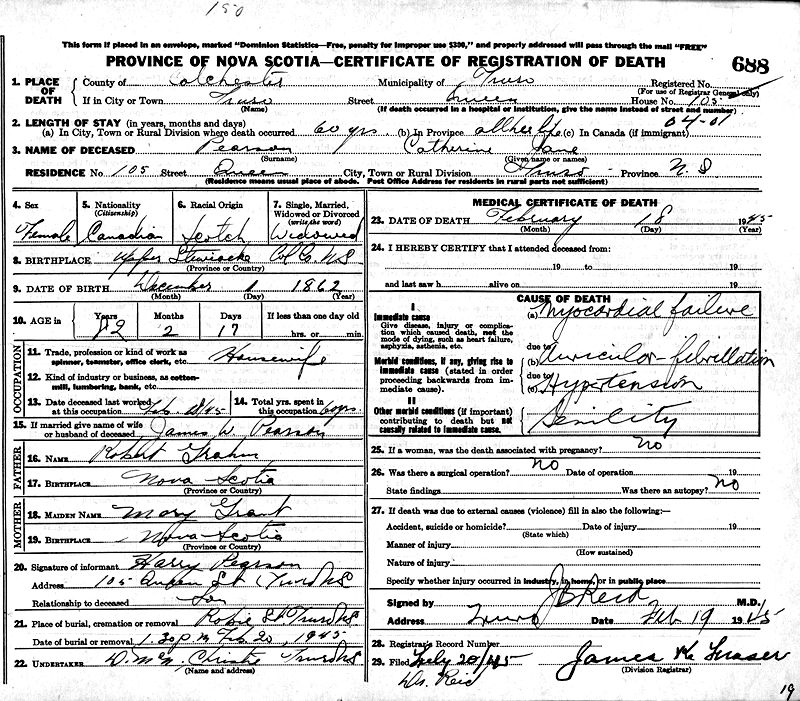 150
This form if placed in an envelope, marked "Dominion Statistics—Free, penalty for improper use $300," and properly addressed will pass through the mail "FREE"
PROVINCE OF NOVA SCOTIA—CERTIFICATE OF REGISTRATION OF DEATH 688
1. PLACE OF DEATH { County of Colchester Municipality of Truro Registered No.
(For use of Registrar General only)
If in City or Town Truro Street Queen House No. 105
(Name) (If death occurred in a hospital or institution, give the name instead of street and number)
04-01
2. LENGTH OF STAY (in years, months and days)
(a) In City, Town or Rural Division where death occurred 60 yrs (b) In Province all her life (c) In Canada (if immigrant)
3. NAME OF DECEASED Pearson Catherine Jane
(Surname) (Given name or names)
RESIDENCE No. 105 Street Queen City, Town or Rural Division Truro Province N.S
(Residence means usual place of abode. Post Office Address for residents in rural parts not sufficient)
4. Sex 5. Nationality (Citizenship) 6. Racial Origin 7. Single, Married, Widowed or Divorced (write the word)
Female Canadian Scotch Widowed
8. BIRTHPLACE Upper Stewiacke Col Co. NS
(Province or Country)
9. DATE OF BIRTH December 1 1862
(Month) (Day) (Year)
10. AGE in { Years Months Days If less than one day old
82 2 17 hrs. or min.
OCCUPATION
11. Trade, profession or kind of work as spinner, teamster, office clerk, etc. Housewife
12. Kind of industry or business, as cotton-mill, lumbering, bank, etc.
13. Date deceased last worked at this occupation Feb. 45 14. Total yrs. spent in this occupation 60 yrs
15. If married give name of wife or husband of deceased James W. Pearson
FATHER
16. NAME Robert Graham
17. BIRTHPLACE Nova Scotia
(Province or Country)
MOTHER
18. MAIDEN NAME Mary Grant
19. BIRTHPLACE Nova-Scotia
(Province or Country)
20. Signature of informant Harry Pearson
Address 105 Queen St Truro NS
Relationship to deceased Son
21. Place of burial, cremation or removal Robie St Truro NS
Date of burial or removal 1.30 p m Feb 20, 1945
22. UNDERTAKER D. McN. Christie Truro NS
(Name and address)
MEDICAL CERTIFICATE OF DEATH
23. DATE OF DEATH February 18 1945
(Month) (Day) (Year)
24. I HEREBY CERTIFY that I attended deceased from:
19 to 19
and last saw h alive on 19
CAUSE OF DEATH
I
Immediate cause (a) Myocardial failure
Give disease, injury or complication which caused death, not the mode of dying, such as heart failure, asphyxia, asthenia, etc.
due to
Morbid conditions, if any, giving rise to immediate cause (stated in order proceeding backwards from immediate cause). (b) Auricular-fibrillation
due to
(c) Hypertension
II
Other morbid conditions (if important) contributing to death but not causally related to immediate cause. Senility
25. If a woman, was the death associated with pregnancy? no
26. Was there a surgical operation? no Date of operation 19
State findings Was there an autopsy? no
27. If death was due to external causes (violence) fill in also the following:—
Accident, suicide or homicide? Date of injury 19
(State which)
Manner of injury
(How sustained)
Nature of injury
Specify whether injury occurred in industry, in home, or in public place
Signed by J B Reid M.D.
Address Truro Date Feb 19 1945
28. Registrar's Record Number
29. Filed Feby 20/45 James K Fraser
(Division Registrar)
Dr. Reid
19